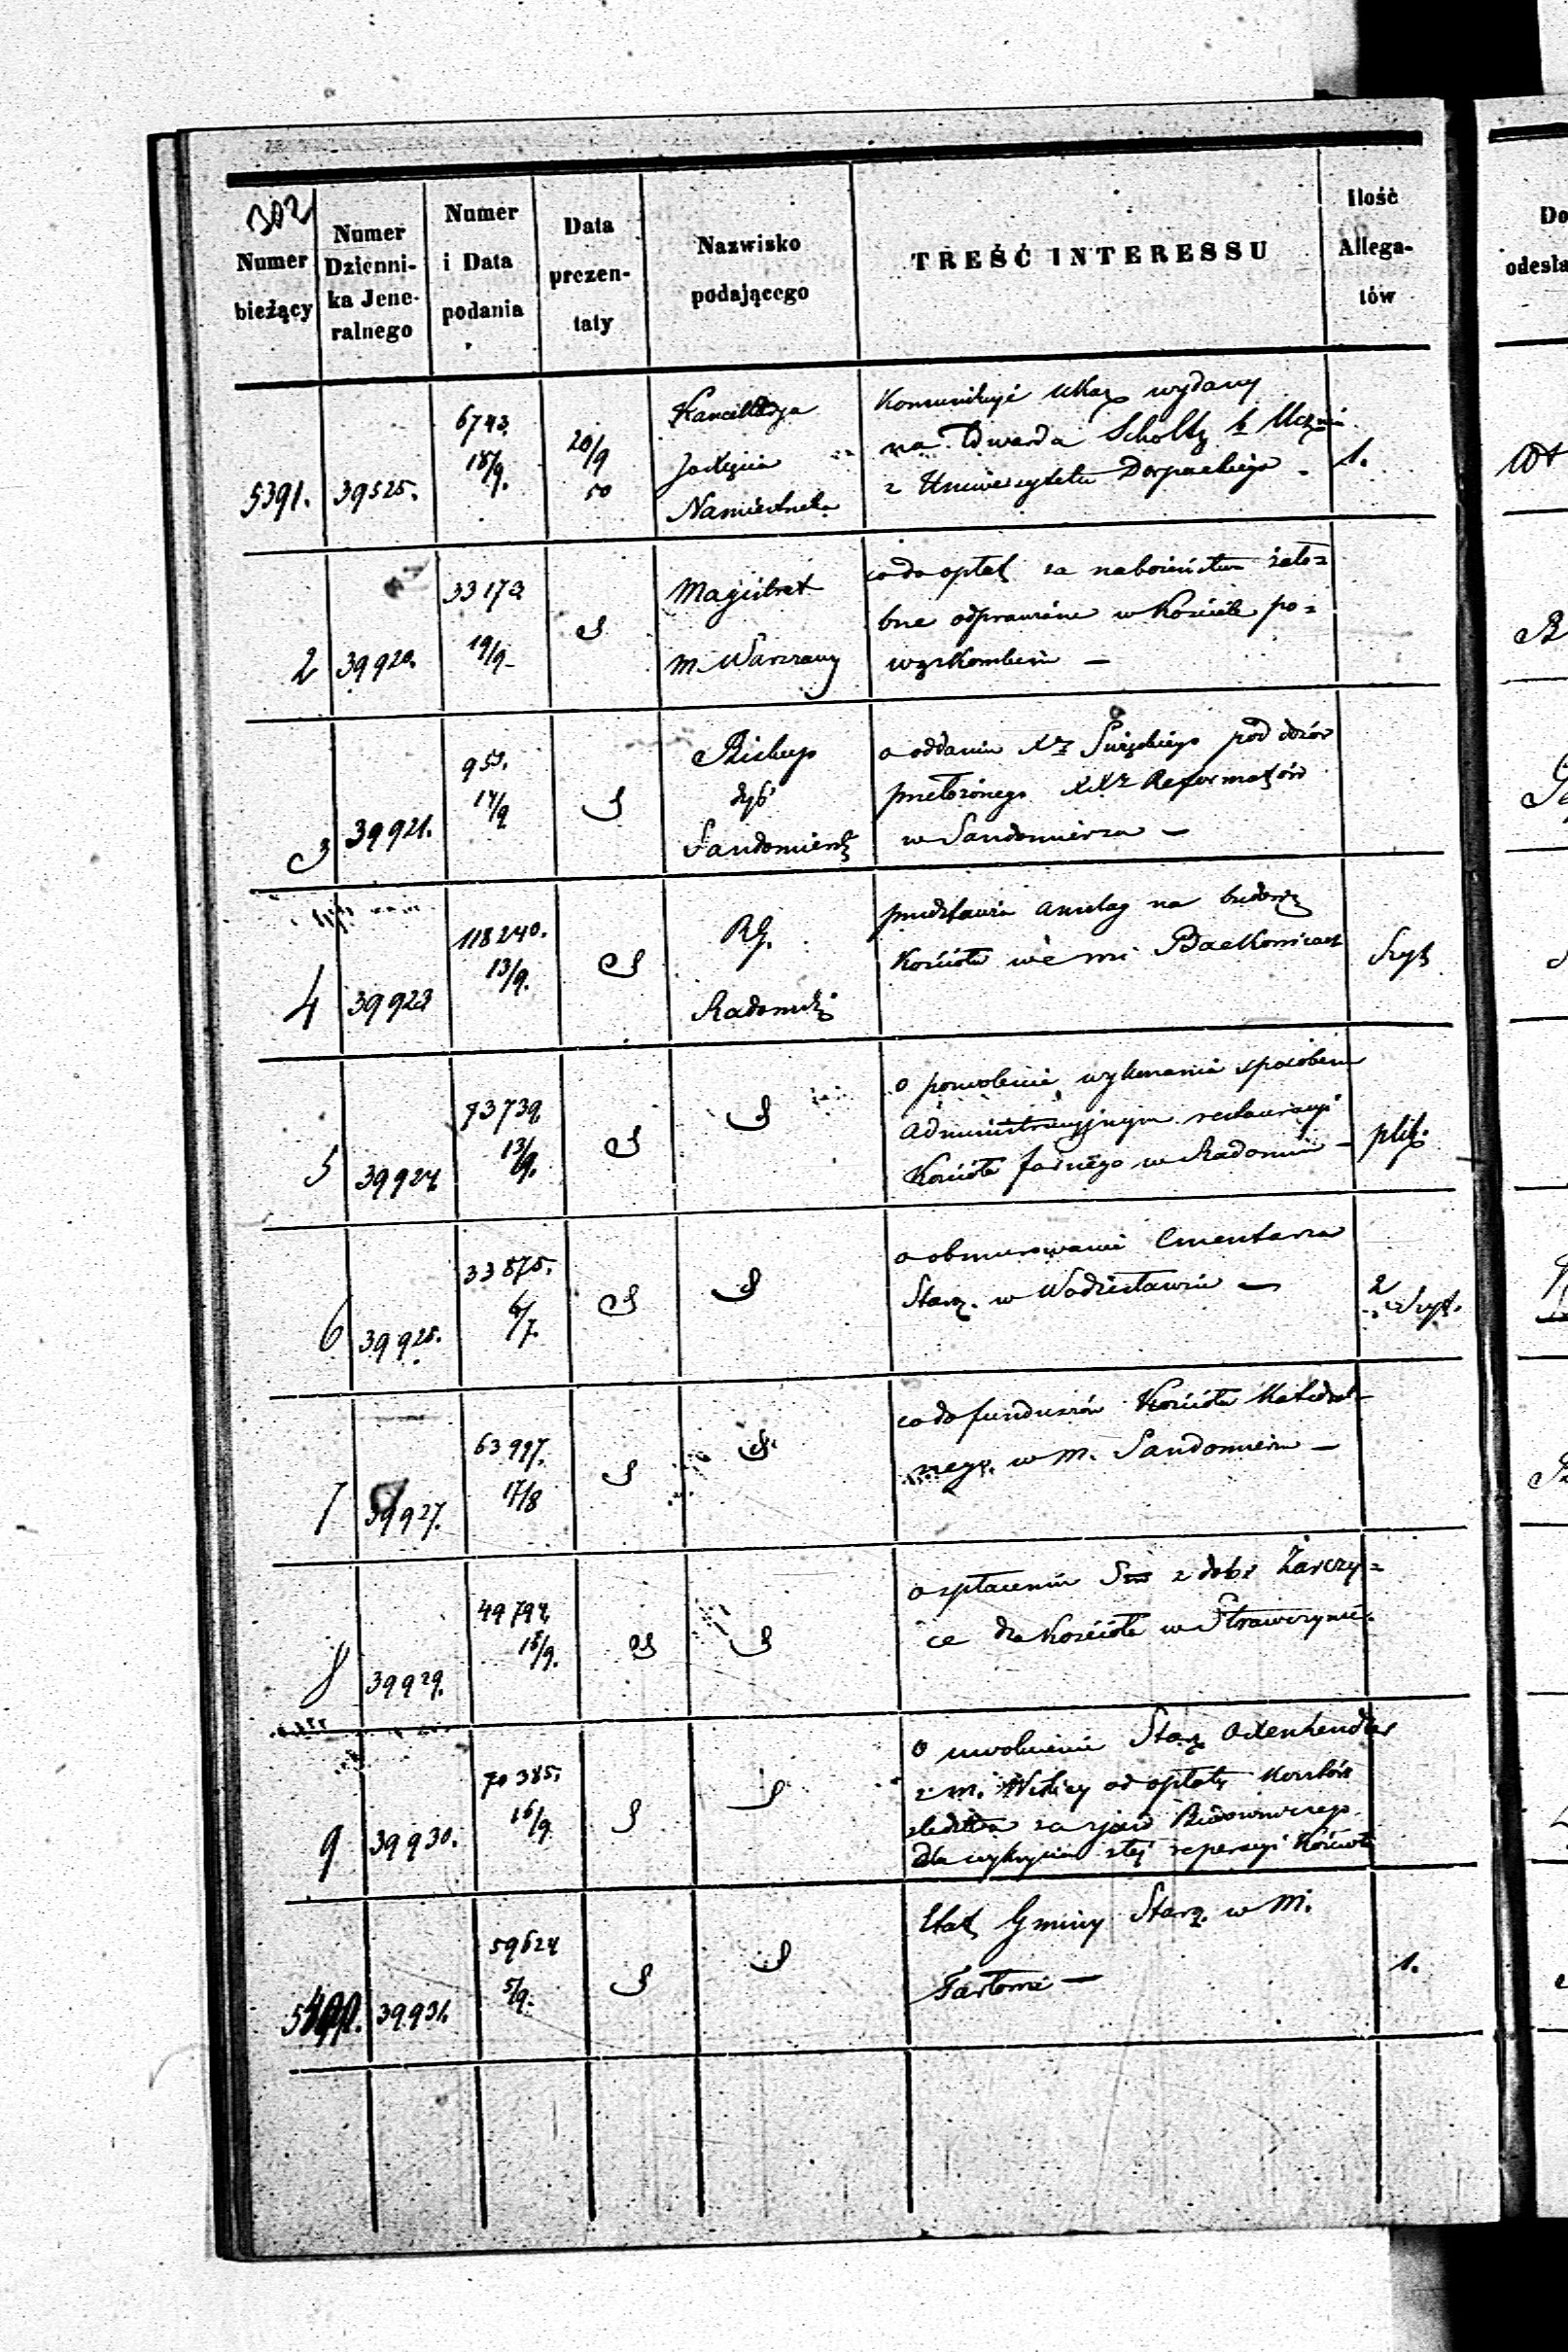 302
Numer bieżący
Numer Dzienni-ka Jene-ralnego
Numer i Data podania
Data prezen-taty
Nazwisko podającego
TREŚĆ INTERESSU
Ilość Allega-tów
5391. 39525. 6743. 18/9. 20/9 50 Kancellarya
Namiestnika
Kommunikuje Ukaz wydany
na Edwarda Scholtz b. Ucznia
z Uniwersytetu Dorpackiego - 1.
2 39920. 33172 19/9 S Magistrat
m. Warszawy
co do opłat za nabożeństwa żało=
bne odprawiane w Kościele po=
wązkowskim —
3 39921. 953. 14/9 S Biskup
Dyb
Sandomierski
o oddaniu Xa pod dozór
przełożonego XXz Reformatów
w Sandomierzu —
4 39923 118240. 13/9. S RG.
Radomski
przedstawia anszlag na budowę
Kościoła we wsi Baćkowicach
Szyt
5 39924 73739 13/9. S S
o pozwolenie wykonania sposobem
administracyjnym restauracyi
Kościoła farnego w Radomiu — plik.
6 39925. 33875. 6/7. S S
o obmurowanie Cmentarza
Starz. w Wodzisławiu — 2 Szyt.
7 39927. 63997. 17/8 S S.
co do funduszów Kościoła Katedral-
nego w m. Sandomierzu —
8 39929. 49794 15/9. S S
o spłaceniu z dóbr Żarczy=
ce dla Kościoła w Strawczynie.
9 39930. 70385. 16/9 S S
o uwolnienie Starz. Oxenhendler
z m. od opłaty kosztów
śledztwa za zjazd Budowniczego
dla wykrycia złej reperacyi Kościoła
5400. 39931. 59624 5/9. S S
Etat Gminy Starz. w m.
Tarłowie — 1.
Do
odesła